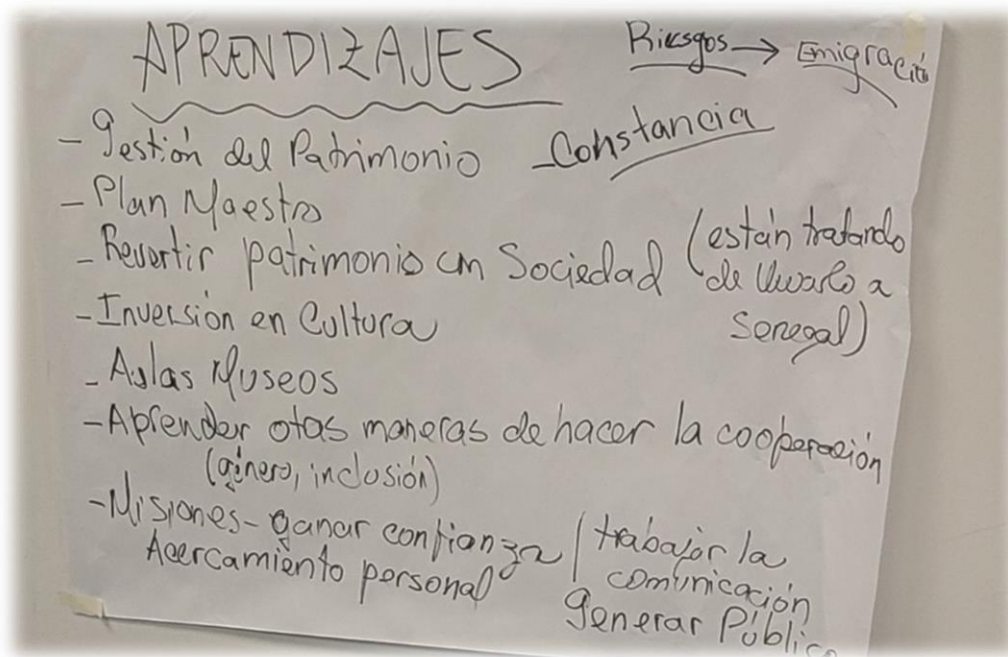 APRENDIZAJES
Riesgos → Emigració
- Gestión del Patrimonio
- Constancia
- Plan Maestro
- Revertir patrimonio en Sociedad (están tratando
de llevarlo a
Senegal)
- Inversión en Cultura
- Aulas Museos
- Aprender otas maneras de hacer la cooperación
(género, inclusión)
- Misiones - ganar confianza / trabajar la
Acercamiento personal
comunicación
Generar Público